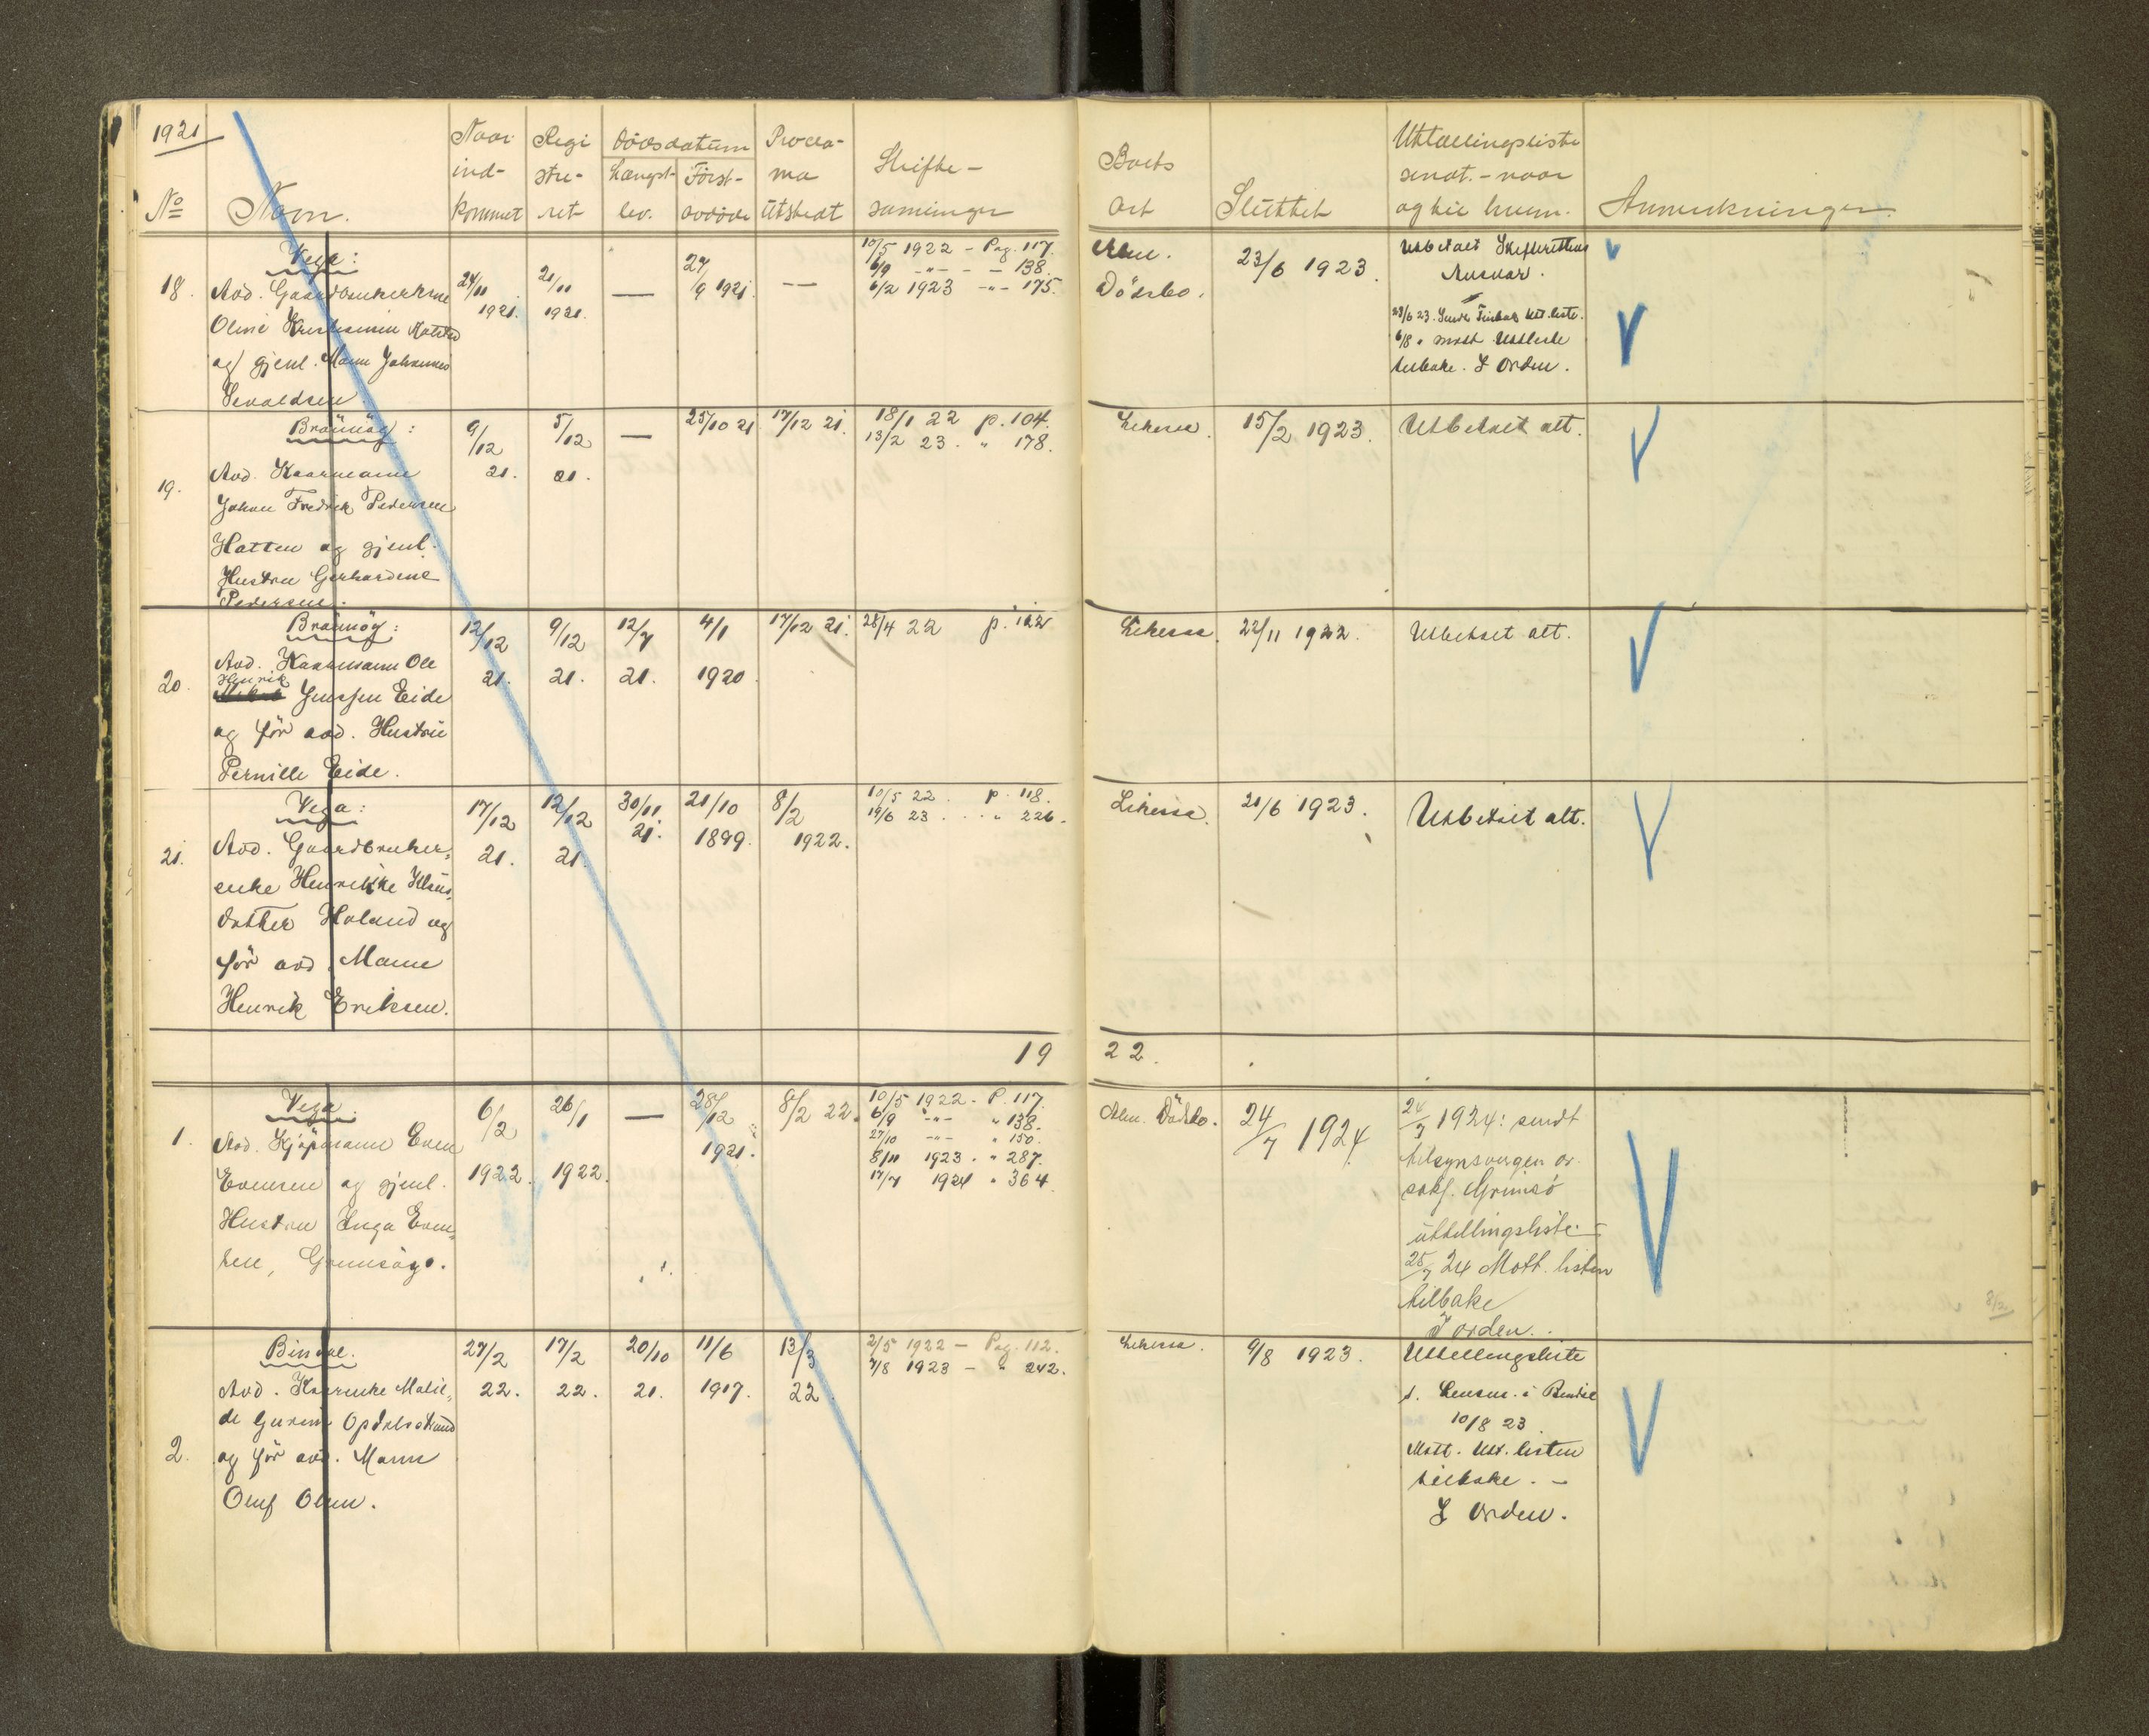 1921
No
Navn.
Naar ind- kommet
Regi stre- ret
Dödsdatum
Længst- lev.
Först- avdöde
Procla- ma Utstedt
Skifte- samlinger
Boets Art
Sluttet
Utlællingsliste sendt. - naar og til hvem.
Anmerkninger.
18.
Vega:
Avd. Gaardbrukerkone
Oline
og gjenl. Mann Johannes
Sevaldsen.
24/11 1921.
21/11 1921.
—
27/9 1921
—
10/5 1922 - Pag. 117.
6/9 -"- - - 138.
6/2 1923 -"- 175.
Alm. Dödsbo.
23/6 1923.
Utbetalt Skifterettens Ansvar.
6/8 " mott Utlliste
tilbake. I Orden.
19.
Brönnöy:
Avd. Kaarmann
Johan Fredrik Pedersen
Hatten og gjenl.
Hustru Gerhardine
Pedersen.
9/12 21.
5/12 21.
—
25/10 21
17/12 21.
18/1 22 p. 104.
13/2 23. " 178.
15/2 1923.
Utbetalt alt.
20.
Brönnöy:
Avd. Kaarmann Ole
Henrik
Jenssen Eide
og för avd. Hustru
Pernille Eide.
12/12 21.
9/12 21.
12/7 21.
4/1 1920
17/12 21.
28/4 22 p. 112
22/11 1922.
Utbetalt alt.
21.
Vega:
Avd. Gaardbruker-
enke Henrikke Klaus-
datter Holand og
för avd. Mann
Henrik Eriksen.
17/12 21.
12/12 21.
30/11 21.
21/10 1899.
8/2 1922.
10/5 22. p. 118.
19/6 23. " 226.
21/6 1923.
Utbetalt alt.
19 22.
1.
Vega
Avd. Kjöpmann Even
Evensen og gjenl.
Hustru Inga Even-
sen,
6/2 1922.
26/1 1922.
—
28/12 1921.
8/2 22.
10/5 1922 - P. 117.
6/9 -"- " 138.
27/10 -"- " 150.
8/11 1923. " 287.
17/7 1924 " 364
Alm. Dödsbo.
24/7 1924
24/7 1924: sendt
tilsynsvergen o.
sakf. Grimsö
utlellingsliste.
25/7 24 Mott. listen
tilbake
I orden.
2.
Bindal.
Avd. Kaarenke Matil-
de Gurine
og för avd. Mann
Oluf Olsen.
27/2 22.
17/2 22.
20/10 21.
11/6 1917.
13/3 22
2/5 1922 - Pag. 112.
7/8 1923 - " 242.
9/8 1923.
Utlellingsliste
t. Lensm. i Bindal
10/8 23
Mott. Utl. listen
tilbake. -
I Orden.